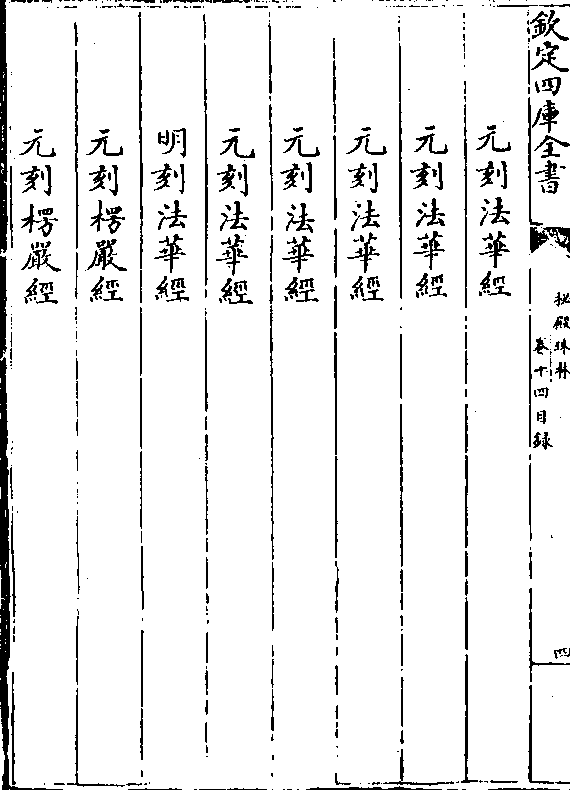 欽定四庫全書
秘殿珠林
卷十四目録
四
元刻法華經
元刻法華經
元刻法華經
元刻法華經
元刻法華經
明刻法華經
元刻楞嚴經
元刻楞嚴經